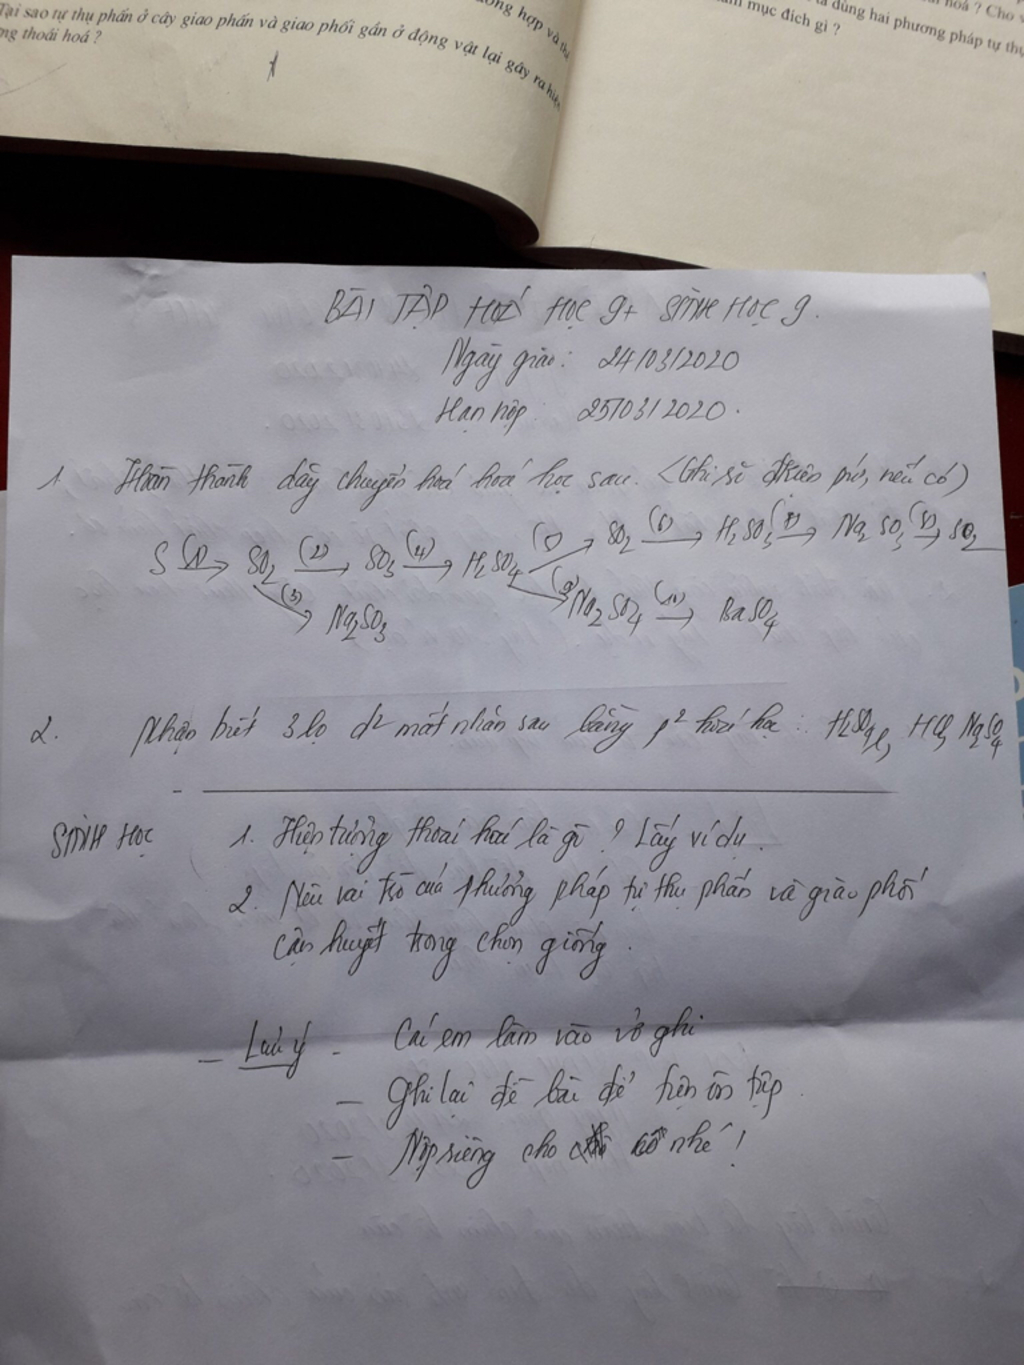 Tại sao tự thụ phấn ở cây giao phấn và giao phối gần ở động vật lại gây ra hiện
ng thoái hoá ?
ng hợp và th
mục đích gì ?
dùng hai phương pháp tự thụ
hoá ? Cho
BÀI TẬP HOÁ HỌC 9 + SINH HỌC 9.
Ngày giao: 24/03/2020
Hạn nộp: 25/03/2020.
1. Hoàn thành dãy chuyển hoá hoá học sau. (Ghi rõ đkiện pứ, nếu có)
S (1)→ SO2 (2)→ SO3 (4)→ H2SO4 (5)→ SO2 (6)→ H2SO3 (7)→ Na2SO3 (8)→ SO2
(3)→ Na2SO3 (9)→ Na2SO4 (10)→ BaSO4
2. Nhận biết 3 lọ d² mất nhãn sau bằng p² hoá học: H2SO4 l, HCl, Na2SO4
SINH HỌC 1. Hiện tượng thoái hoá là gì? Lấy ví dụ.
2. Nêu vai trò của phương pháp tự thụ phấn và giao phối
cận huyết trong chọn giống.
- Lưu ý - Các em làm vào vở ghi
- Ghi lại đề bài để tiện ôn tập.
- Nộp riêng cho cô nhé!